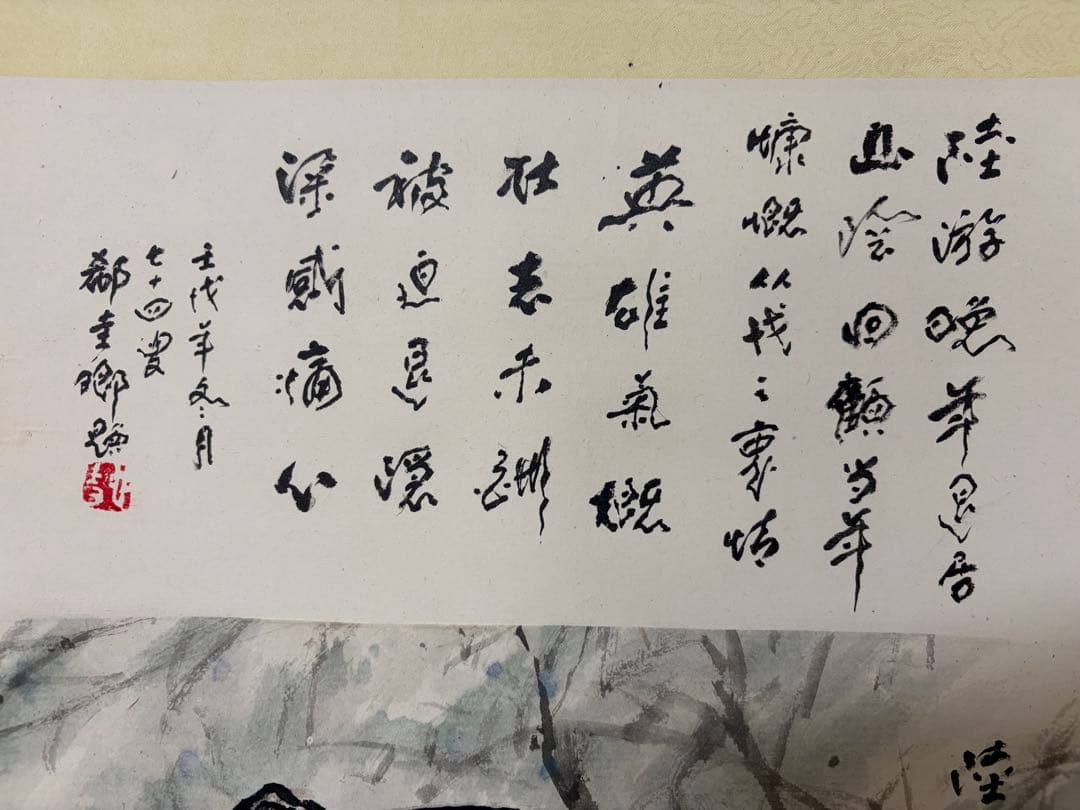 陸游晚年退居
山陰回顧当年
慷慨从戎之衷情
英雄氣概
壮志未酬
被迫退隱
深感痛心
壬戌年冬月
七十四叟
郗奎鄉題
陸